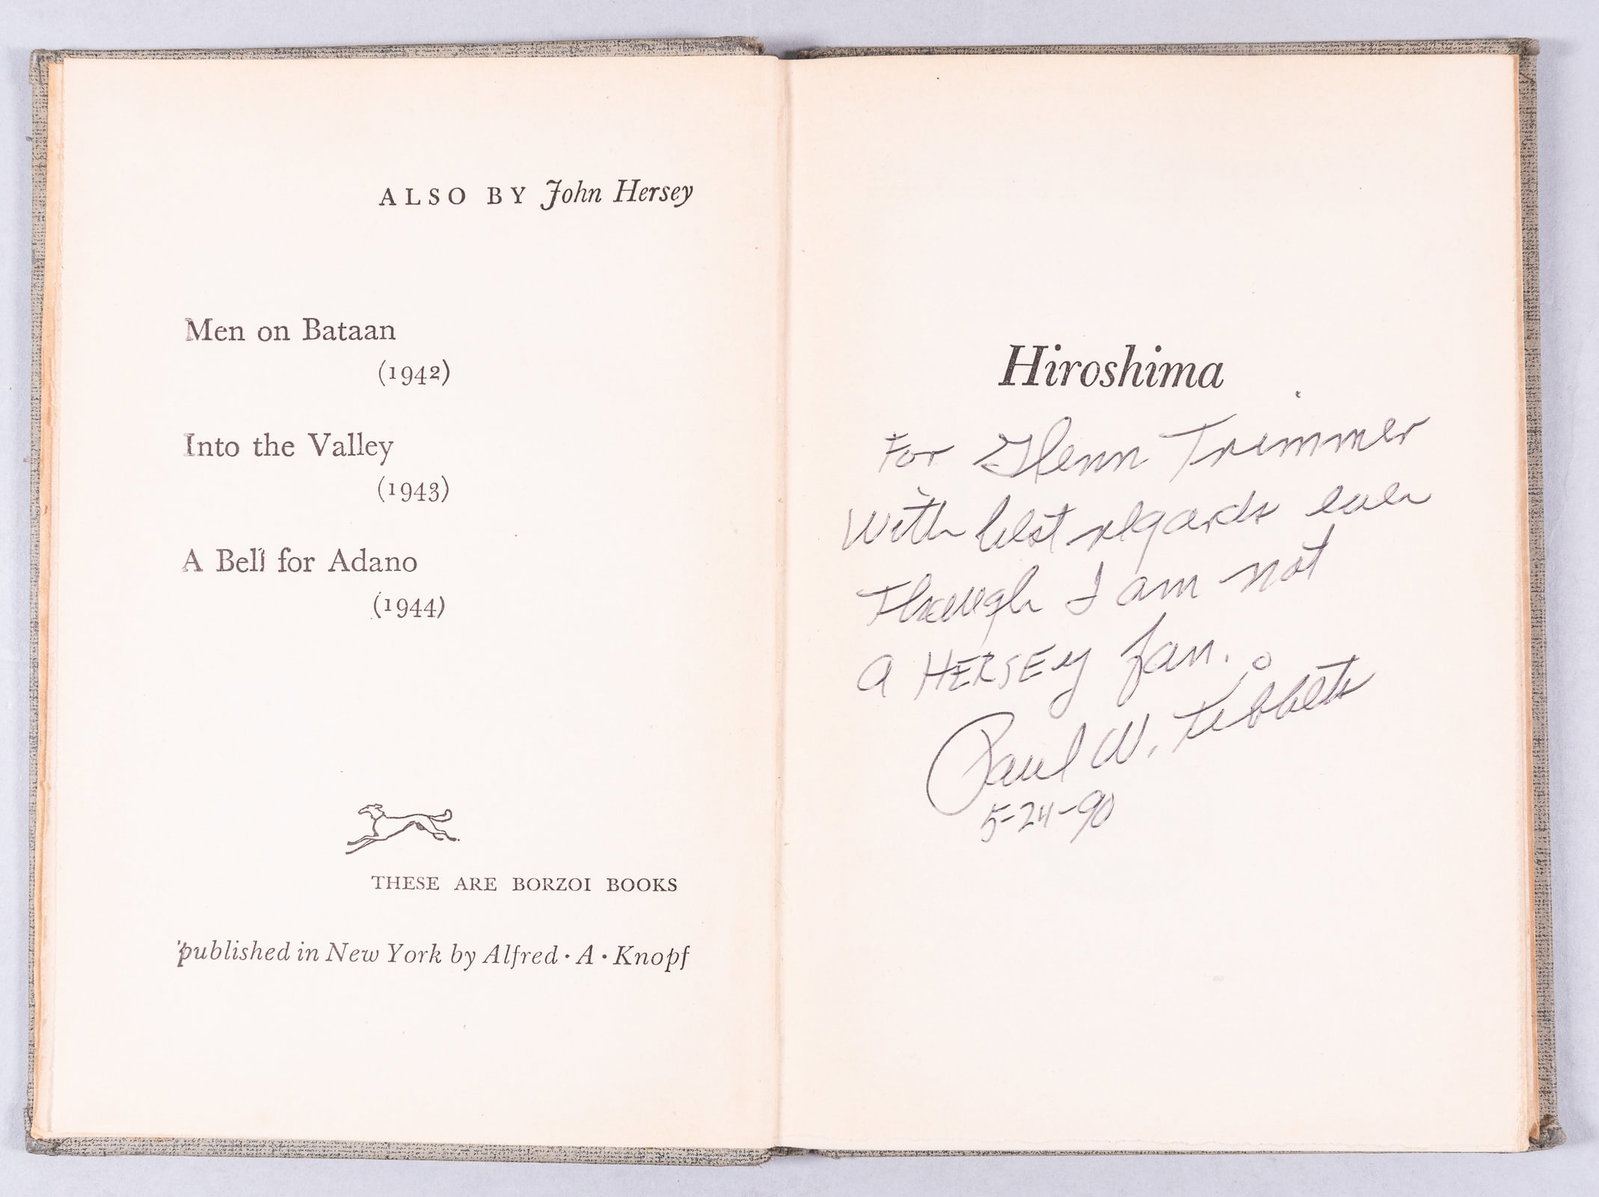 ALSO BY John Hersey
Men on Bataan
(1942)
Into the Valley
(1943)
A Bell for Adano
(1944)
THESE ARE BORZOI BOOKS
published in New York by Alfred · A · Knopf
Hiroshima
For Glenn Trimmer
With best regards even
Though I am not
a HERSEY fan.
Paul W. Tibbets
5-24-90